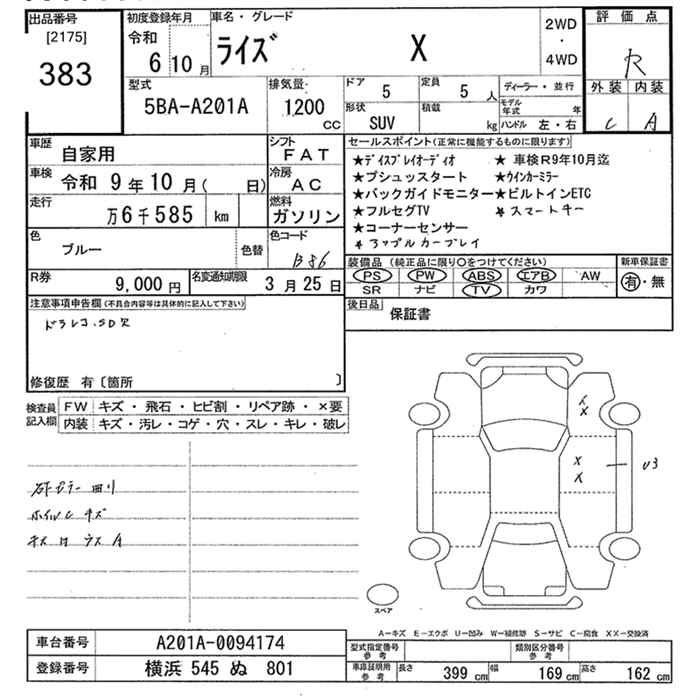 出品番号
[2175]
383
初度登録年月
令和
6 10 月
車名・グレード
ライズ X
2WD
・
4WD
評価点
R
外装 内装
C A
型式
5BA-A201A
排気量
1,200 cc
ドア 5
定員 5 人
形状 SUV
積載 kg
ディーラー・並行
モデル年式 年
ハンドル 左・右
車歴 自家用
シフト FAT
車検 令和 9年10月( 日)
冷房 AC
走行 万6千585 km
燃料 ガソリン
色 ブルー 色替
色コード B86
R券 9,000円
名変通知期限 3月25日
セールスポイント(正常に機能するものに限り)
★ディスプレイオーディオ ★車検R9年10月迄
★プシュッスタート ★ウインカーミラー
★バックガイドモニター★ビルトインETC
★フルセグTV ★スマートキー
★コーナーセンサー
★アップルカープレイ
装備品(純正品に限り○をつけてください) 新車保証書
PS PW ABS エアB AW 有・無
SR ナビ TV カワ
後日品 保証書
注意事項申告欄(不具合内容等は具体的に記入して下さい)
ドラレコ.SD欠
修復歴 有〔箇所 〕
検査員記入欄 FW キズ・飛石・ヒビ割・リペア跡・×要
内装 キズ・汚レ・コゲ・穴・スレ・キレ・破レ
ホイルC キズ
U3
スペア
A－キズ E－エクボ U－凹み W－補修跡 S－サビ C－腐食 XX－交換済
車台番号 A201A-0094174
登録番号 横浜 545 ぬ 801
型式指定番号参考 類別区分番号参考
車庫証明用参考 長さ 399 cm 幅 169 cm 高さ 162 cm